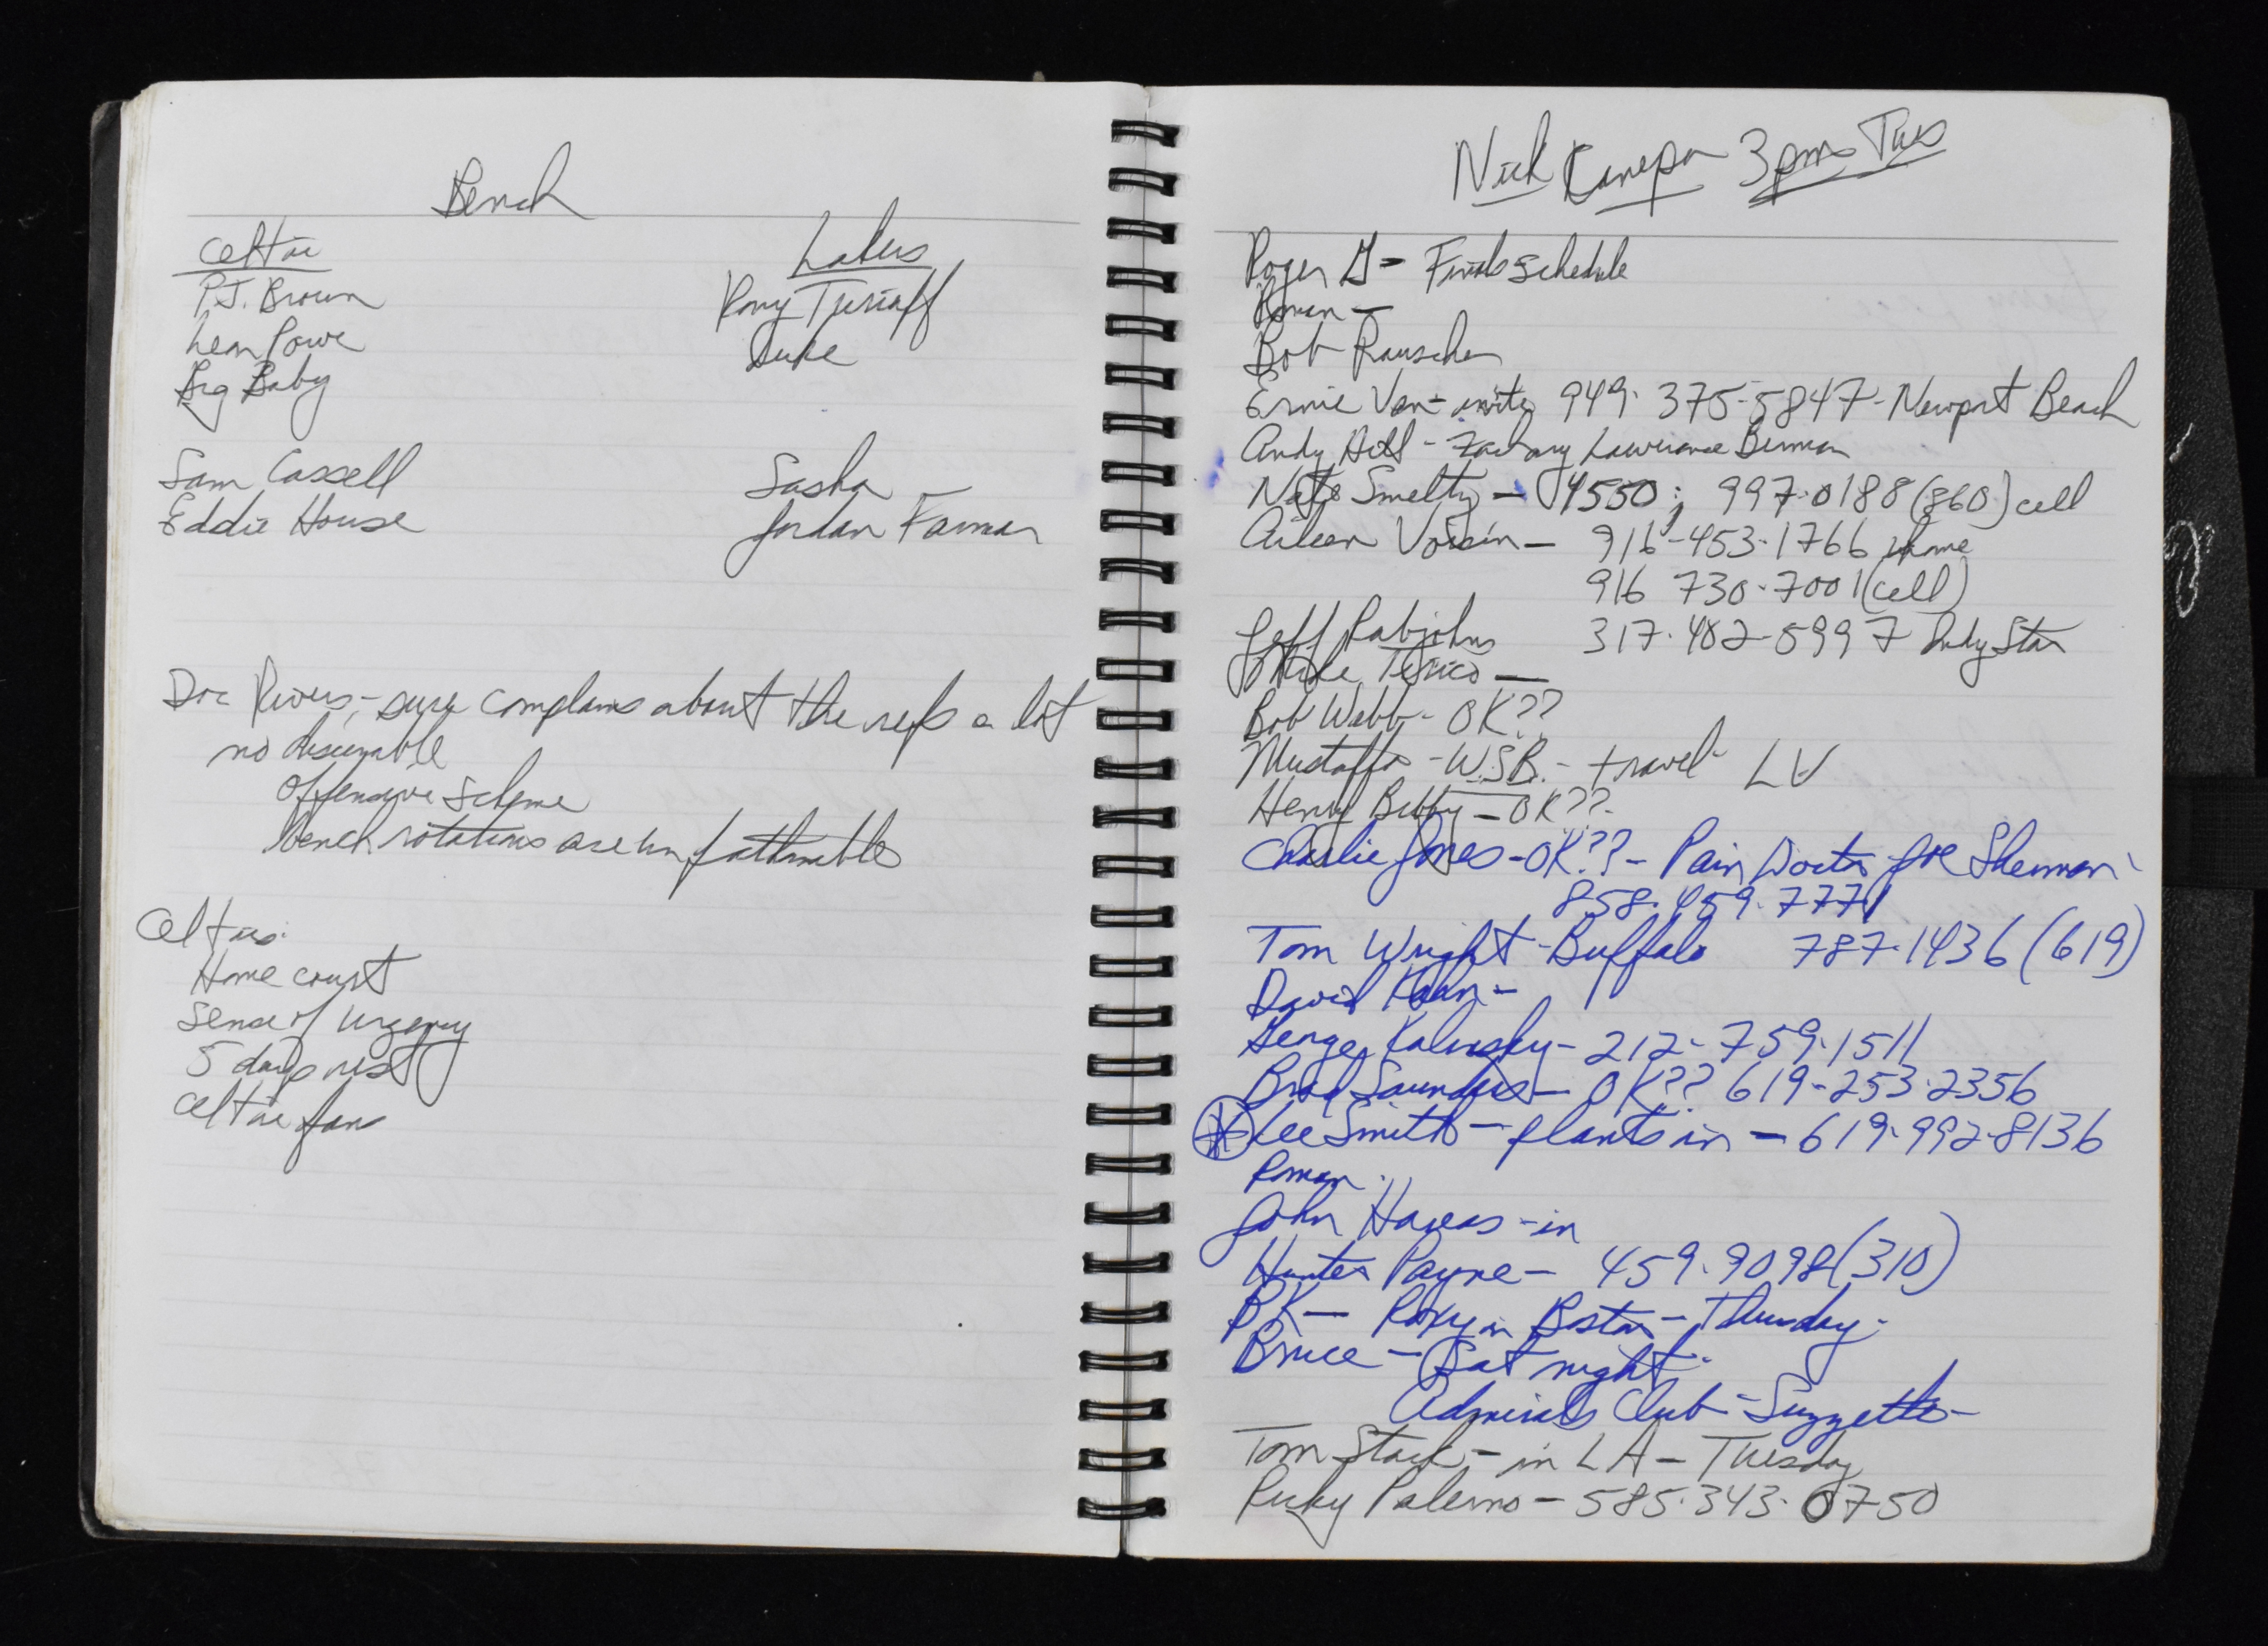 Bench
Celtic
P.J. Brown
Leon Powe
Big Baby
Sam Cassell
Eddie House
Lakers
Rony Turiaff
Luke
Sasha
Jordan Farmar
Doc Rivers - sure complains about the refs a lot
no discernable
offensive scheme
bench rotations are unfathmable
Celtics:
Home court
Sense of urgency
5 days rest
Celtic fans
Nick Kanepa 3pm Tues
Roger G = Finals schedule
Roman -
Bob Rauscher
Ernie Van - 949. 375-5847 - Newport Beach
Andy Hill - Zachary Lawrence Berman
Nate Smeltz - 4550; 997.0188 (860) cell
Aileen Voisin - 916-453.1766 home
916 730-7001 (cell)
Jeff Rabjohns 317.402-5997 Indy Star
Mike Tirico -
Bob Webb - OK??
Mustaffa - W.S.B. - travel - LV
Henry Bibby - OK??
Charlie Jones - OK?? - Pain Doctor Joe Sherman
858.459.7771
Tom Wright - Buffalo 787.1436 (619)
David Kahn -
George Kalinsky - 212-759.1511
Brad Saunders - OK?? 619-253.2356
Lee Smith - plants in - 619.992-8136
Roman
John Havens - in
Hunter Payne - 459.9098 (310)
PK - Roxy in Boston - Thursday
Bruce - Sat night
Admirals Club - Suzzette -
Tom Stack - in LA - Tuesday
Ricky Palermo - 585.343.0750